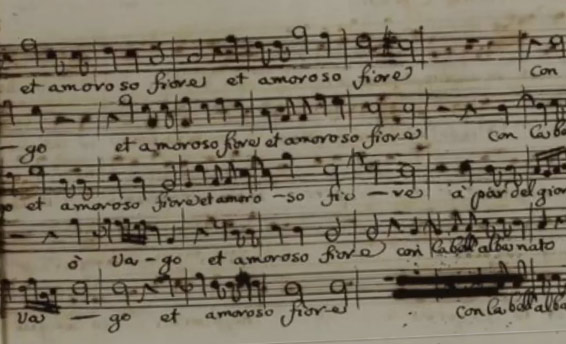 et amoroso fiore et amoroso fiore con
- go et amoroso fiore et amoroso fiore con la be
et amoroso fiore et amoro - so fio - re à par del gior
ò va - go et amoroso fiore con la bell' alba nato
va - go et amoroso fiore con la bell' alba